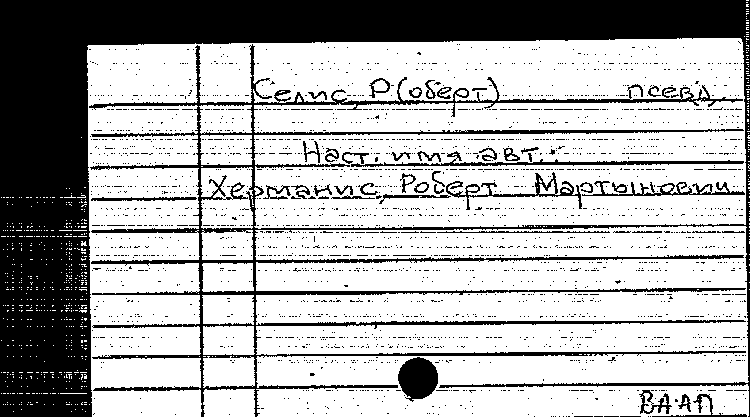 Селис, Р(оберт) псевд.
Наст. имя авт.:
Херманис, Роберт Мартынович
ВААП